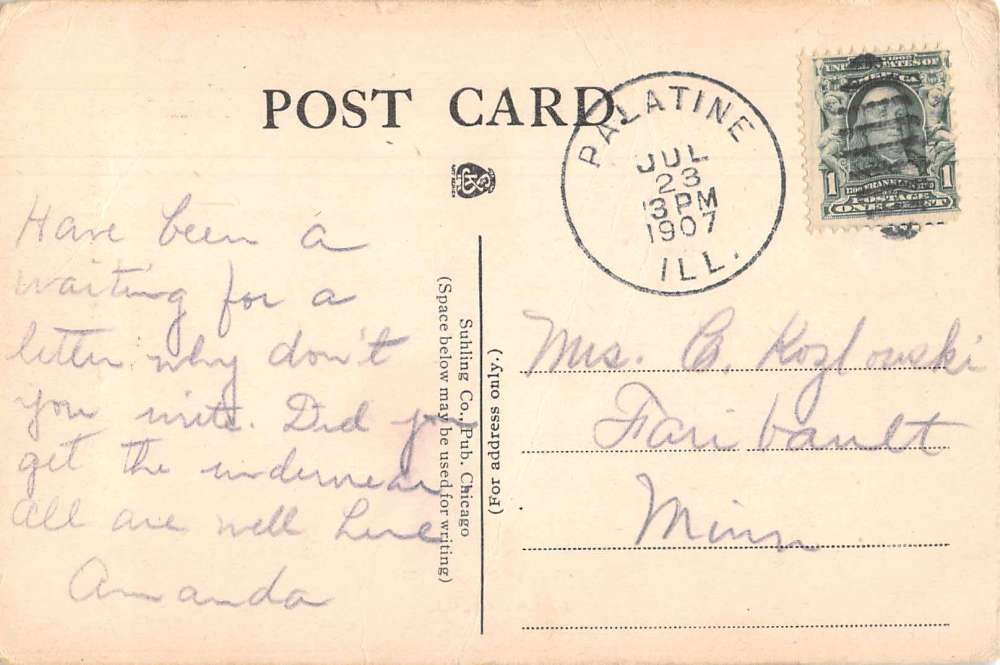 POST CARD
PALATINE
JUL
23
3 PM
1907
ILL.
UNITED STATES OF
AMERICA
1 1
FRANKLIN
POSTAGE
ONE CENT
Have been a
waiting for a
letter why don't
you write. Did you
get the underwear
all are well here
Amanda
Suhling Co., Pub. Chicago
(Space below may be used for writing)
(For address only.)
Mrs. Kozlowski
Faribault
Minn